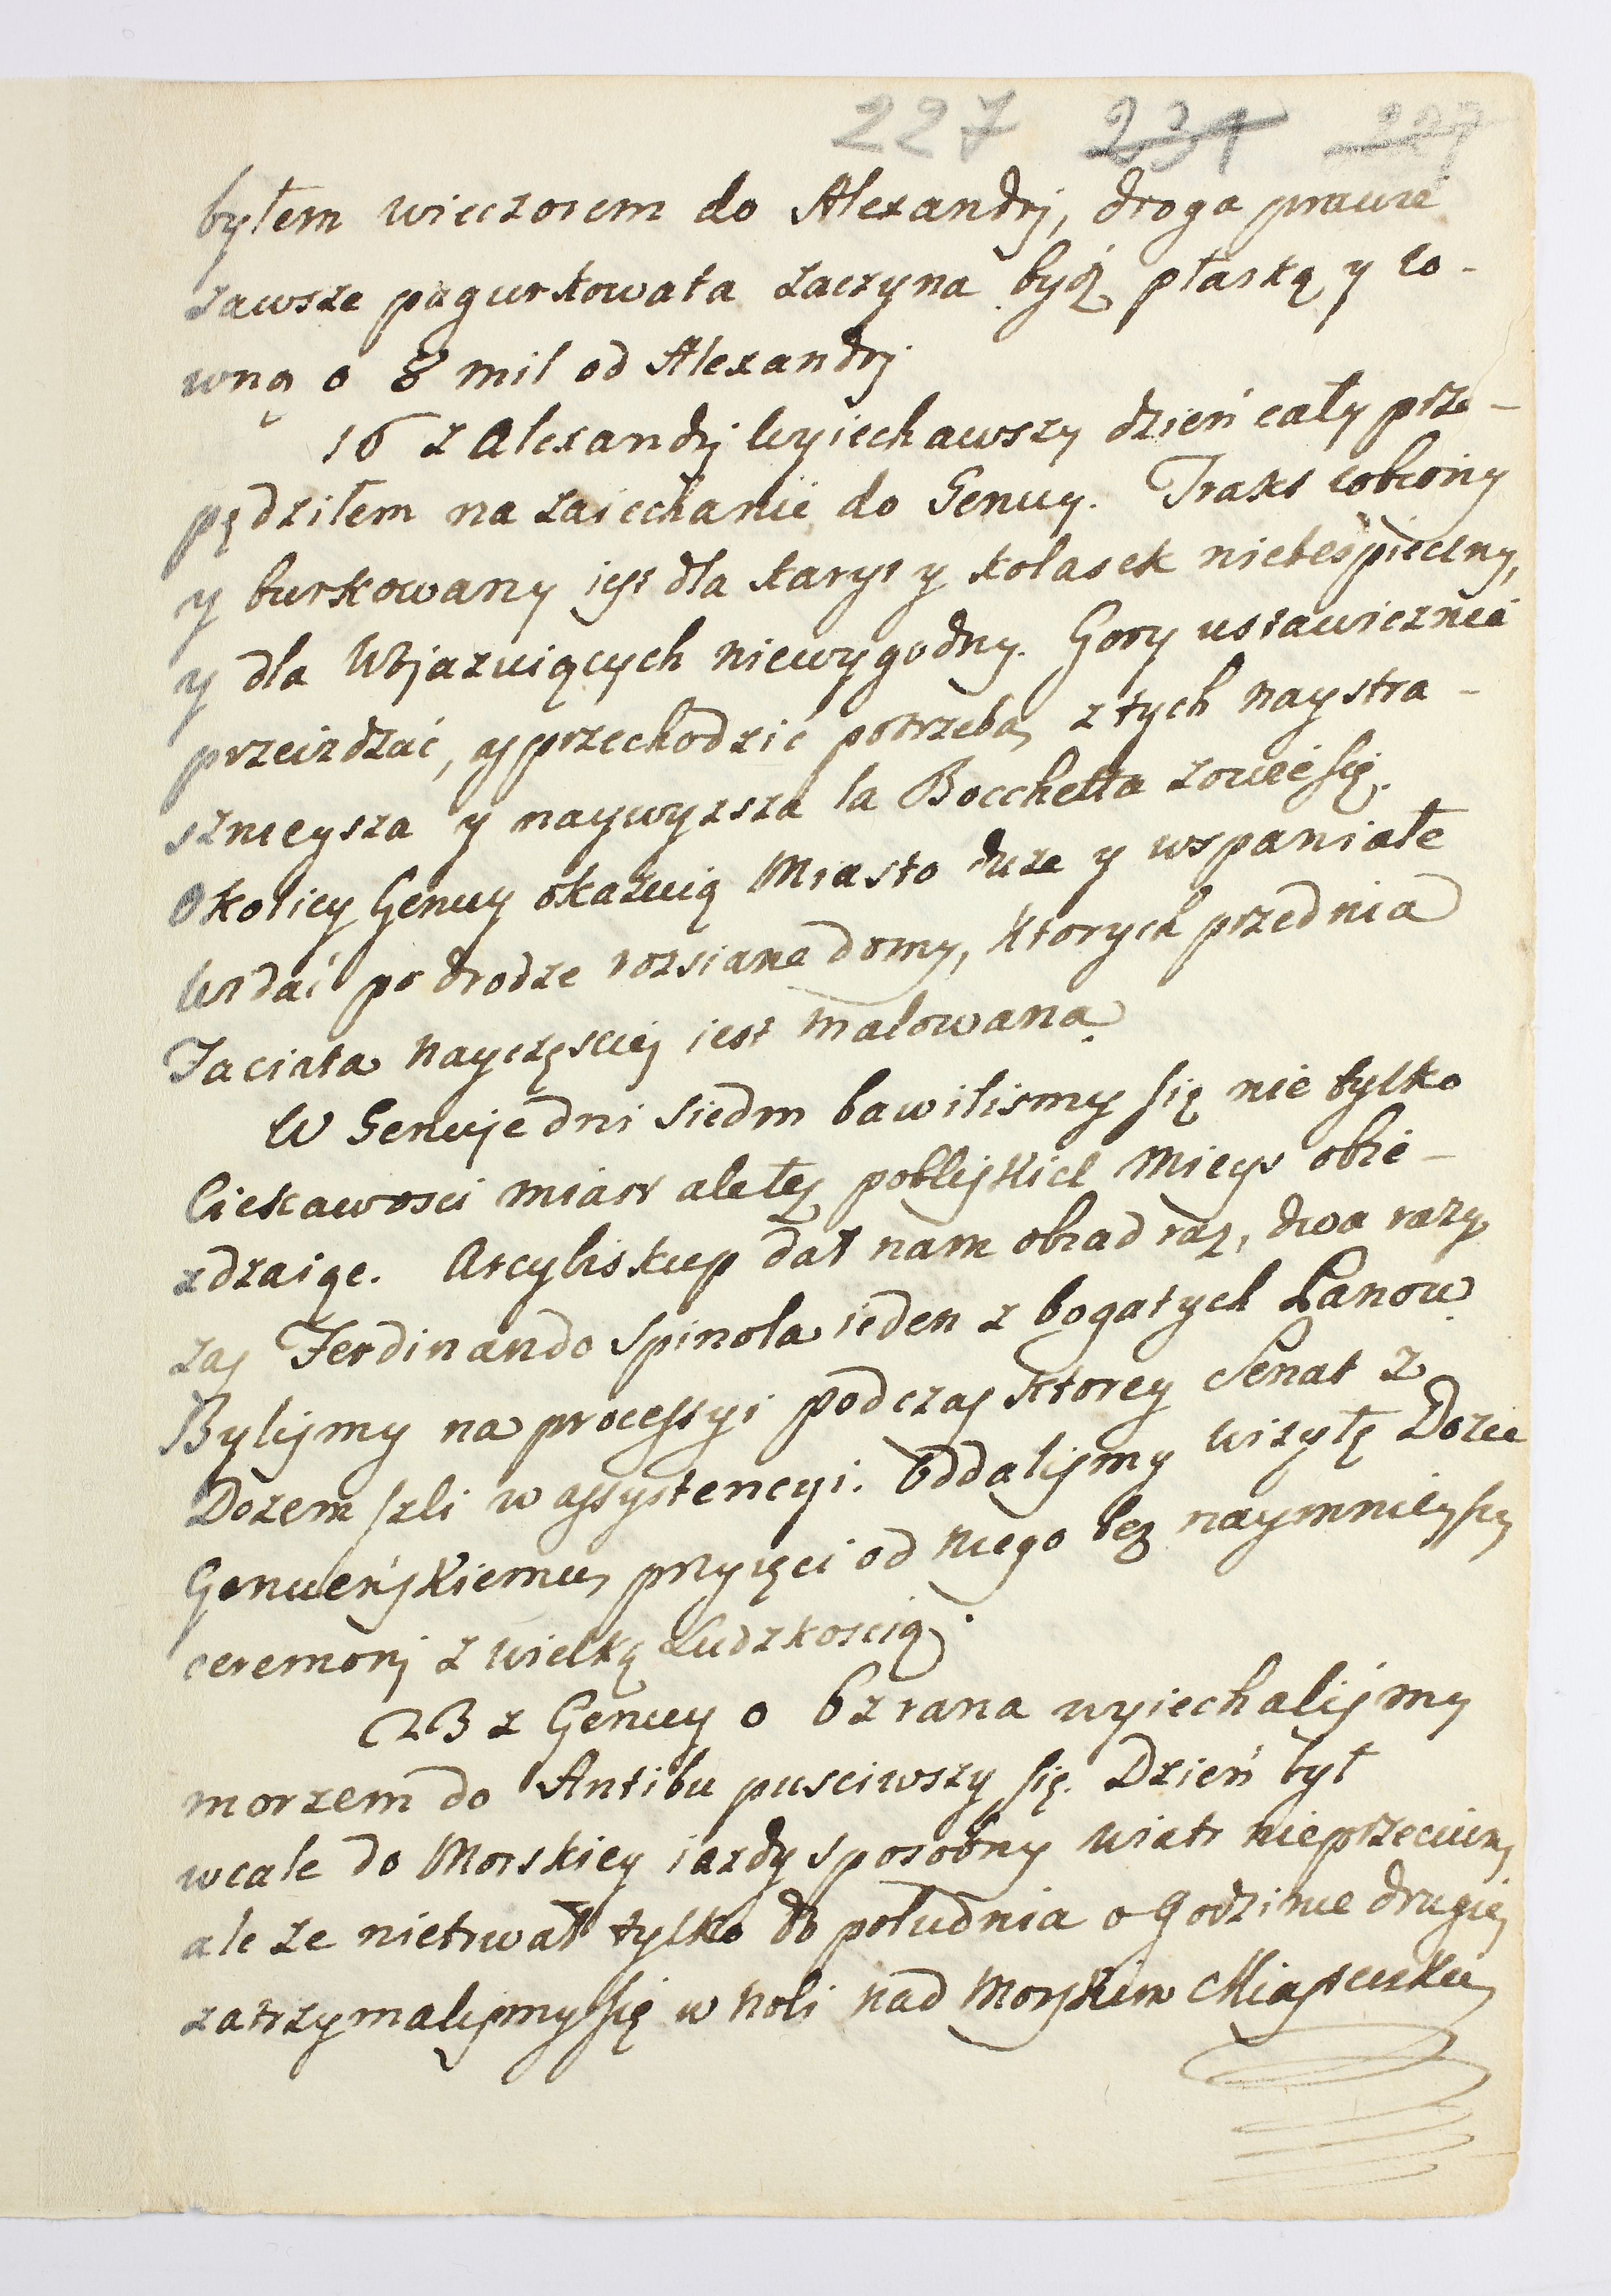 227 231 227
byłem wieczorem do Alexandrj, droga prawie
zawsze pagurkowata zaczyna bydź płaską y ro-
wną o 8 mil od Alexandrj
16 z Alexandrj wyiechawszy dzień cały prze-
pędziłem na zaiechanie do Genuy. Trakt robiony
y burkowany iest dla karyt y kolasek niebespieczny,
y dla Woiazuiących niewygodny. Gory ustawicznie
przeizdzać, y przechodzić potrzeba, z tych naystra-
sznieysza y naywyzsza la Bocchetta zowie się.
Okolicy Genuy okazuią Miasto duze y wspaniałe
widać po drodze rozsiane domy, ktorych przednia
Faciata nayczęsciej iest malowana.
W Genuje dni siedm bawilismy się nie tylko
Ciekawosci miast ale też pobliskich mieys obie-
zdzaiąc. Arcybiskup dał nam obiad raz, dwa razy
zas Ferdinando Spinola ieden z bogatych Panow.
Bylismy na processyi podczas ktorey Senat z
Dozem szli w assystencyi. Oddalismy wizytę Dozie
Genueńskiemu, przyięci od niego bez naymnieyszey
ceremonj z wielką Ludzkoscią.
23 z Genuy o 6 z rana wyiechalismy
morzem do Antibu pusciwszy się. Dzień był
wcale do Morskiey iazdy sposobny wiatr nieprzeciwny
ale ze nietrwał tylko do południa o Godzinie drugiey
zatrzymalismy się w Noli nad Morskim Miasteczku